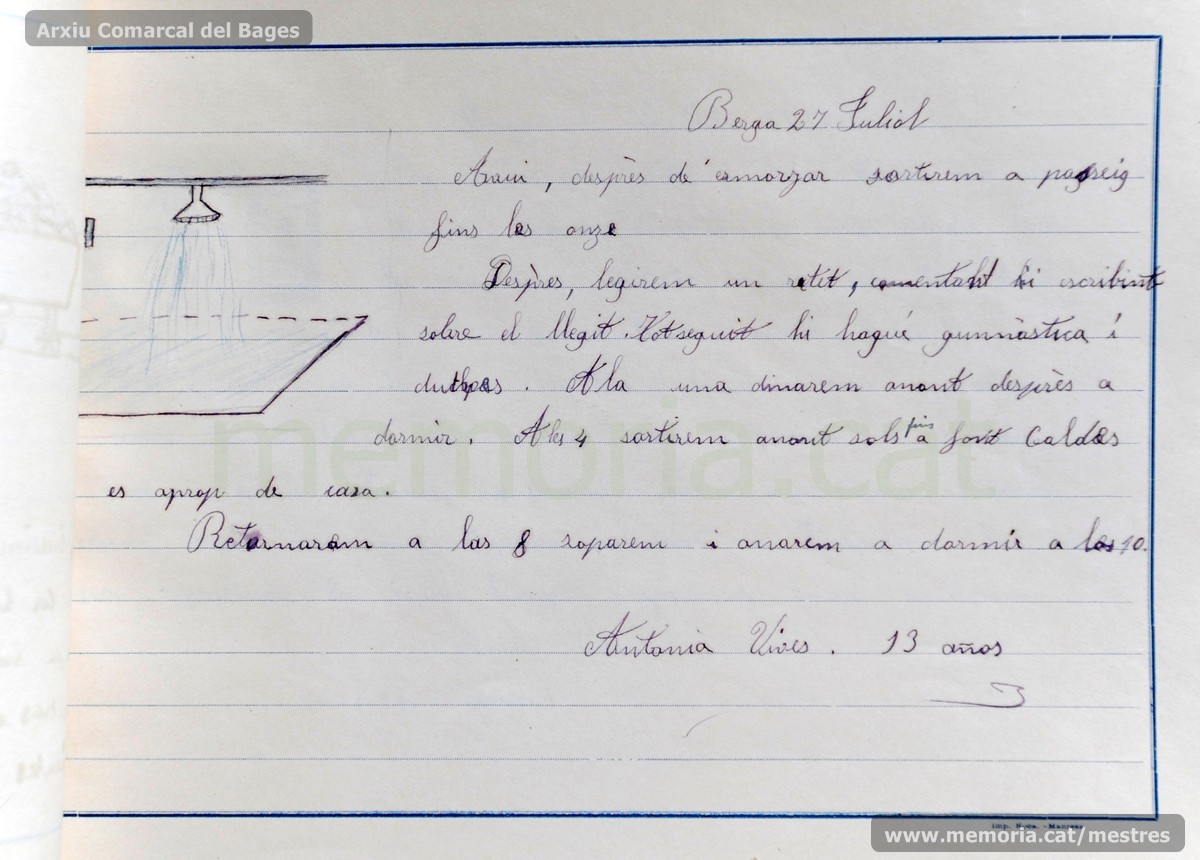 Arxiu Comarcal del Bages
Berga 27 Juliol
Avui, desprès dé esmorzar sortirem a passeig
fins les onze
Desprès, legirem un ratet, comentant hi escribint
sobre el llegit. Totseguit hi hagué gimnàstica i
dutxes. A la una dinarem anant desprès a
dormir. A les 4 sortirem anant sols fins a font Caldes
es aprop de casa.
Retornarem a las 8 soparem i anarem a dormir a les 10.
Antonia Vives. 13 años
memoria.cat
Imp. - Manresa
www.memoria.cat/mestres